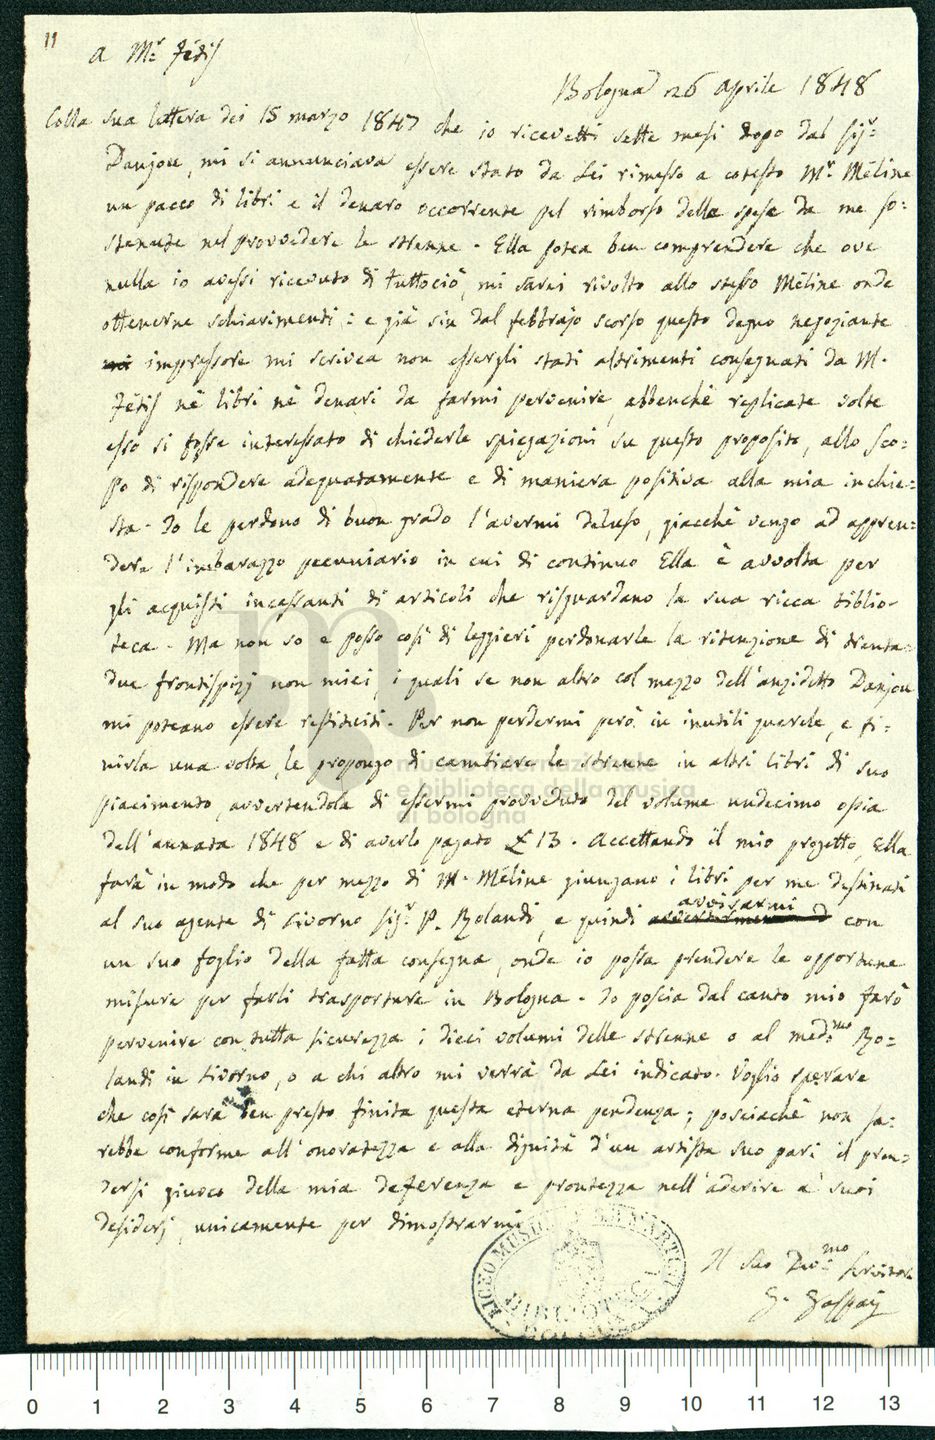 11
A Mr. Fétis
Bologna 26 Aprile 1848
Colla sua lettera dei 15 marzo 1847 che io ricevetti sette mesi dopo dal Sigr.
Danjou, mi si annunciava essere stato da Lei rimesso a cotesto Mr. Méline
un pacco di libri e il denaro occorrente pel rimborso della spesa da me so=
stenuta nel provvedere le strenne. Ella potea ben comprendere che ove
nulla io avessi ricevuto di tuttociò, mi sarei rivolto allo stesso Méline onde
ottenerne schiarimenti: e già sin dal febbrajo scorso questo degno negoziante
impressore mi scrivea non essergli stati altrimenti consegnati da M.
Fétis nè libri nè denari da farmi pervenire, abbenchè replicate volte
esso si fosse interessato di chiederle spiegazioni su questo proposito, allo sco=
po di rispondere adeguatamente e di maniera positiva alla mia inchie=
sta. Io le perdono di buon grado l'avermi deluso, giacchè vengo ad appren=
dere l'imbarazzo pecuniario in cui di continuo Ella è avvolta per
gli acquisti incessanti di articoli che risguardano la sua ricca biblio-
teca. Ma non so e posso così di leggieri perdonarle la ritenzione di trenta=
due frontispizj non miei, i quali se non altro col mezzo dell'anzidetto Danjou
mi poteano essere restituiti. Per non perdermi però in inutili querele, e fi=
nirla una volta, le propongo di cambiare le strenne in altri libri di suo
piacimento, avvertendola di essermi provveduto del volume undecimo ossia
dell'annata 1848 e di averlo pagato £ 13. Accettando il mio progetto, Ella
farà in modo che per mezzo di M. Méline giungano i libri per me destinati
al suo agente di Livorno Sigr. P. Rolandi, e quindi avvisarmi con
un suo foglio della fatta consegna, onde io possa prendere le opportune
misure per farli trasportare in Bologna. Io poscia dal canto mio farò
pervenire con tutta sicurezza i dieci volumi delle strenne o al med.mo Ro=
landi in Livorno, o a chi altro mi verrà da Lei indicato. Voglio sperare
che così sarà ben presto finita questa eterna pendenza; posciachè non sa=
rebbe conforme all'onoratezza e alla dignità d'un artista suo pari il pren=
dersi giuoco della mia deferenza e prontezza nell'aderire a' suoi
desiderj, unicamente per dimostrarmi
Il suo Dev.mo Servitore
G. Gaspari
museo internazionale
e biblioteca della musica
di bologna
0 1 2 3 4 5 6 7 8 9 10 11 12 13